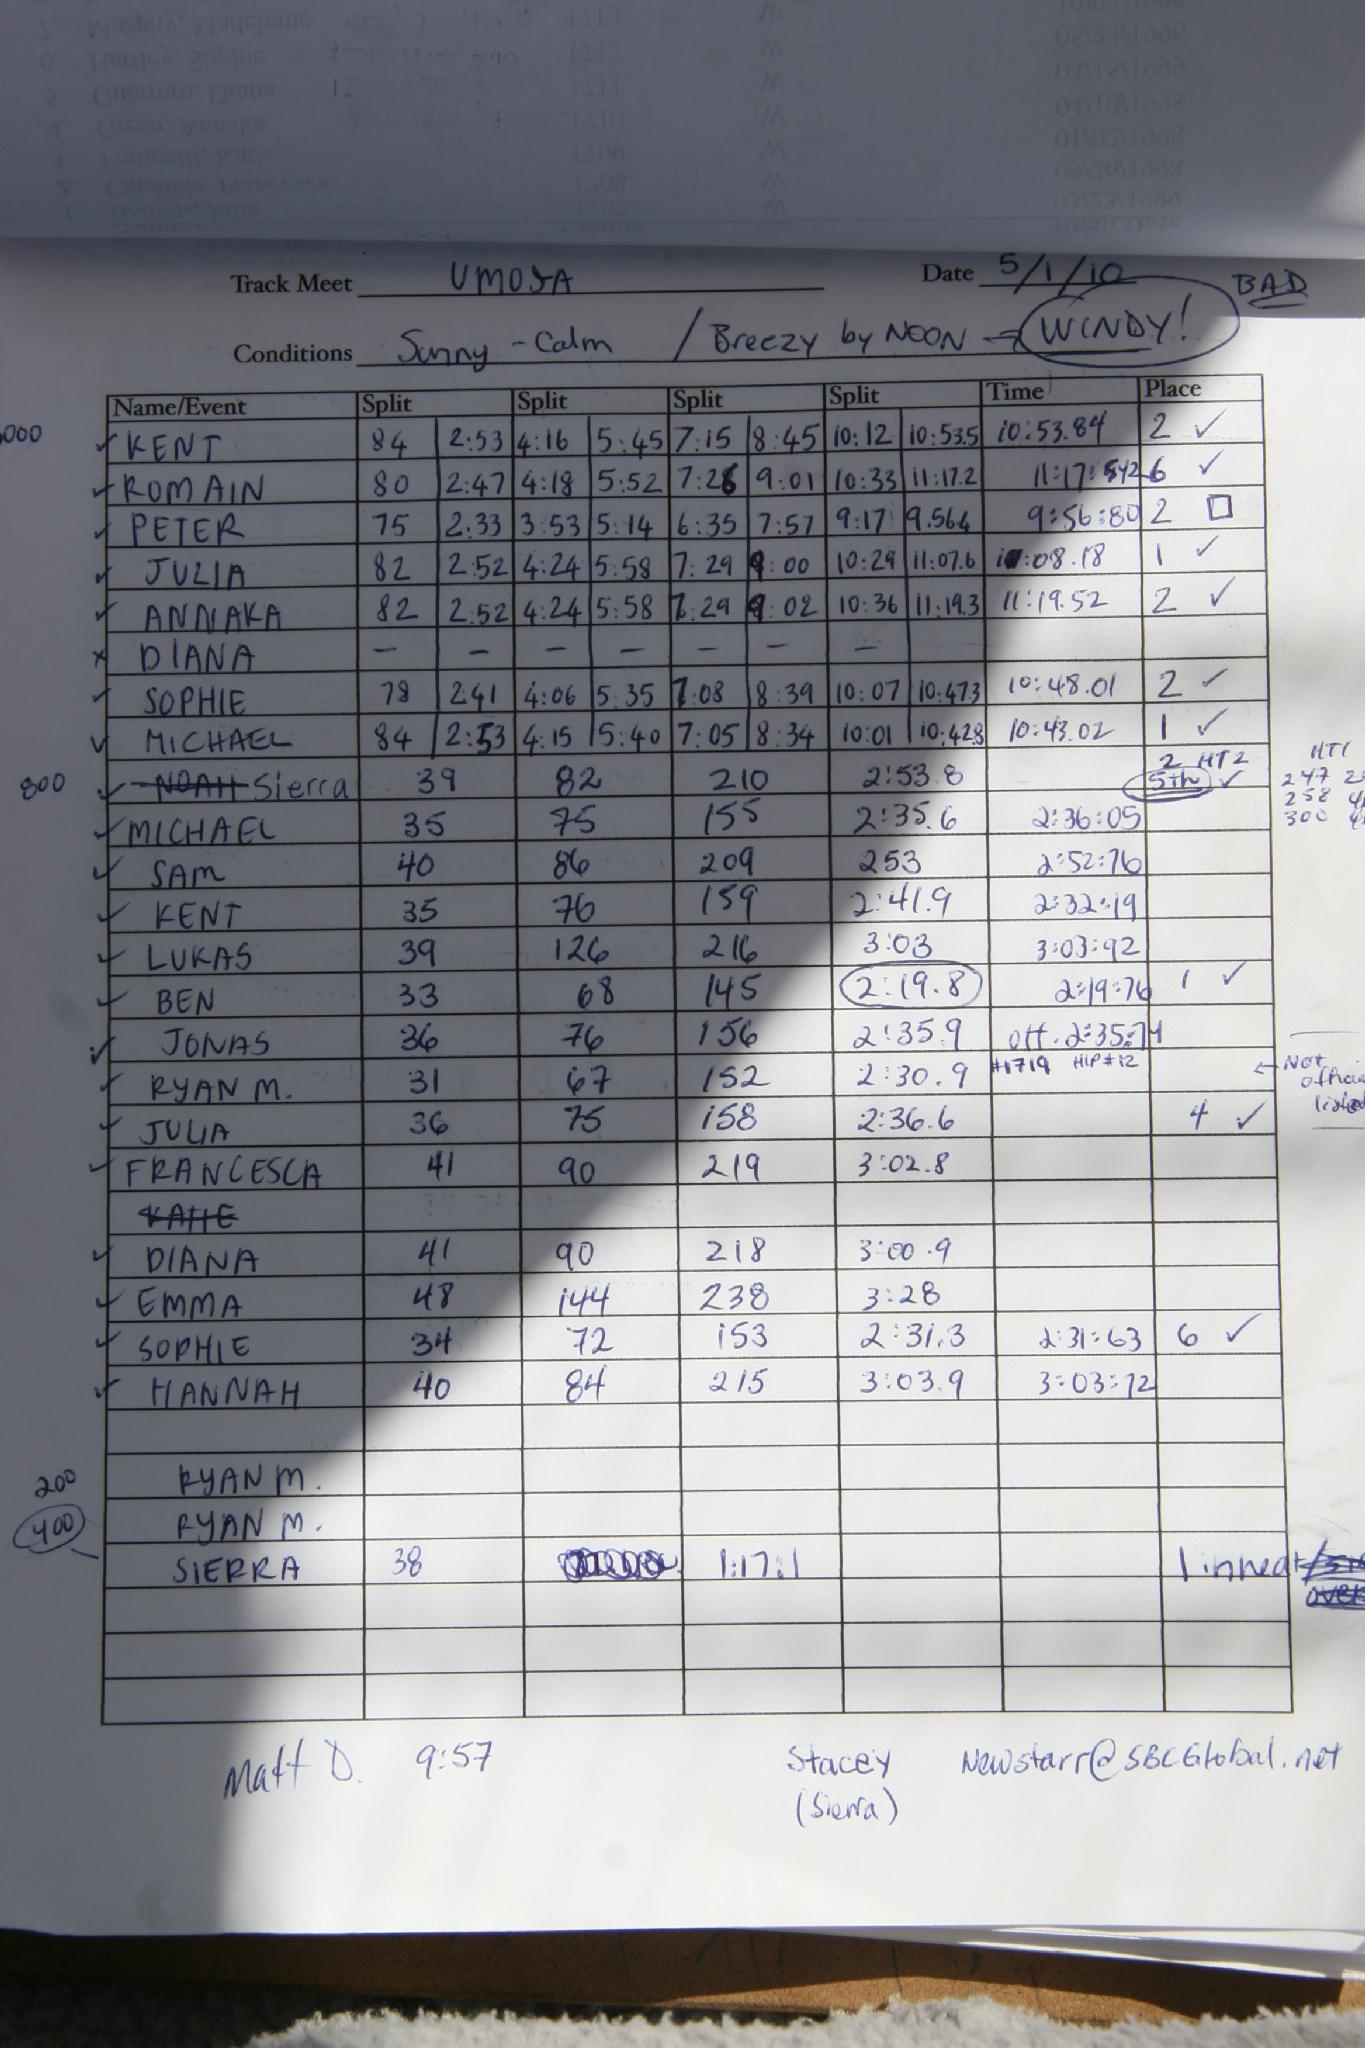 Track Meet UMOJA Date 5/1/10
BAD
Conditions Sunny - Calm / Breezy by NOON → WINDY!
Name/Event Split Split Split Split Time Place
000 ✓ KENT 84 2:53 4:16 5:45 7:15 8:45 10:12 10:53.5 10:53.84 2 ✓
✓ ROMAIN 80 2:47 4:18 5:52 7:26 9:01 10:33 11:17.2 6 ✓
✓ PETER 75 2:33 3:53 5:14 6:35 7:57 9:17 9.564 9:56:80 2 □
✓ JULIA 82 2:52 4:24 5:58 7:29 9:00 10:29 11:07.6 :08.18 1 ✓
✓ ANNAKA 82 2:52 4:24 5:58 7:29 9:02 10:36 11:19.3 11:19.52 2 ✓
x DIANA — — — — — — —
✓ SOPHIE 78 2:41 4:06 5:35 7:08 8:39 10:07 10:47.3 10:48.01 2 ✓
✓ MICHAEL 84 2:53 4:15 5:40 7:05 8:34 10:01 10:42.8 10:43.02 1 ✓
2 HT2
800 ✓ NOAH Sierra 39 82 210 2:53.8 5th ✓
HT1
247
258
300
✓ MICHAEL 35 75 155 2:35.6 2:36:05
✓ SAM 40 86 209 253 2:52:76
✓ KENT 35 76 159 2:41.9 2:32:19
✓ LUKAS 39 126 216 3:03 3:03:92
✓ BEN 33 68 145 2:19.8 2:19:76 1 ✓
✓ JONAS 36 76 156 2:35.9 off. 2:35:74
✓ RYAN M. 31 67 152 2:30.9 #1719 HIP#12
← Not
✓ JULIA 36 75 158 2:36.6 4 ✓
✓ FRANCESCA 41 90 219 3:02.8
KATIE
✓ DIANA 41 90 218 3:00.9
✓ EMMA 48 144 238 3:28
✓ SOPHIE 34 72 153 2:31.3 2:31:63 6 ✓
✓ HANNAH 40 84 215 3:03.9 3:03:72
200 RYAN M.
400 RYAN M.
SIERRA 38 1:17:1 1 in heat
Matt D. 9:57 Stacey Newstarr@SBCGlobal.net
(Sierra)